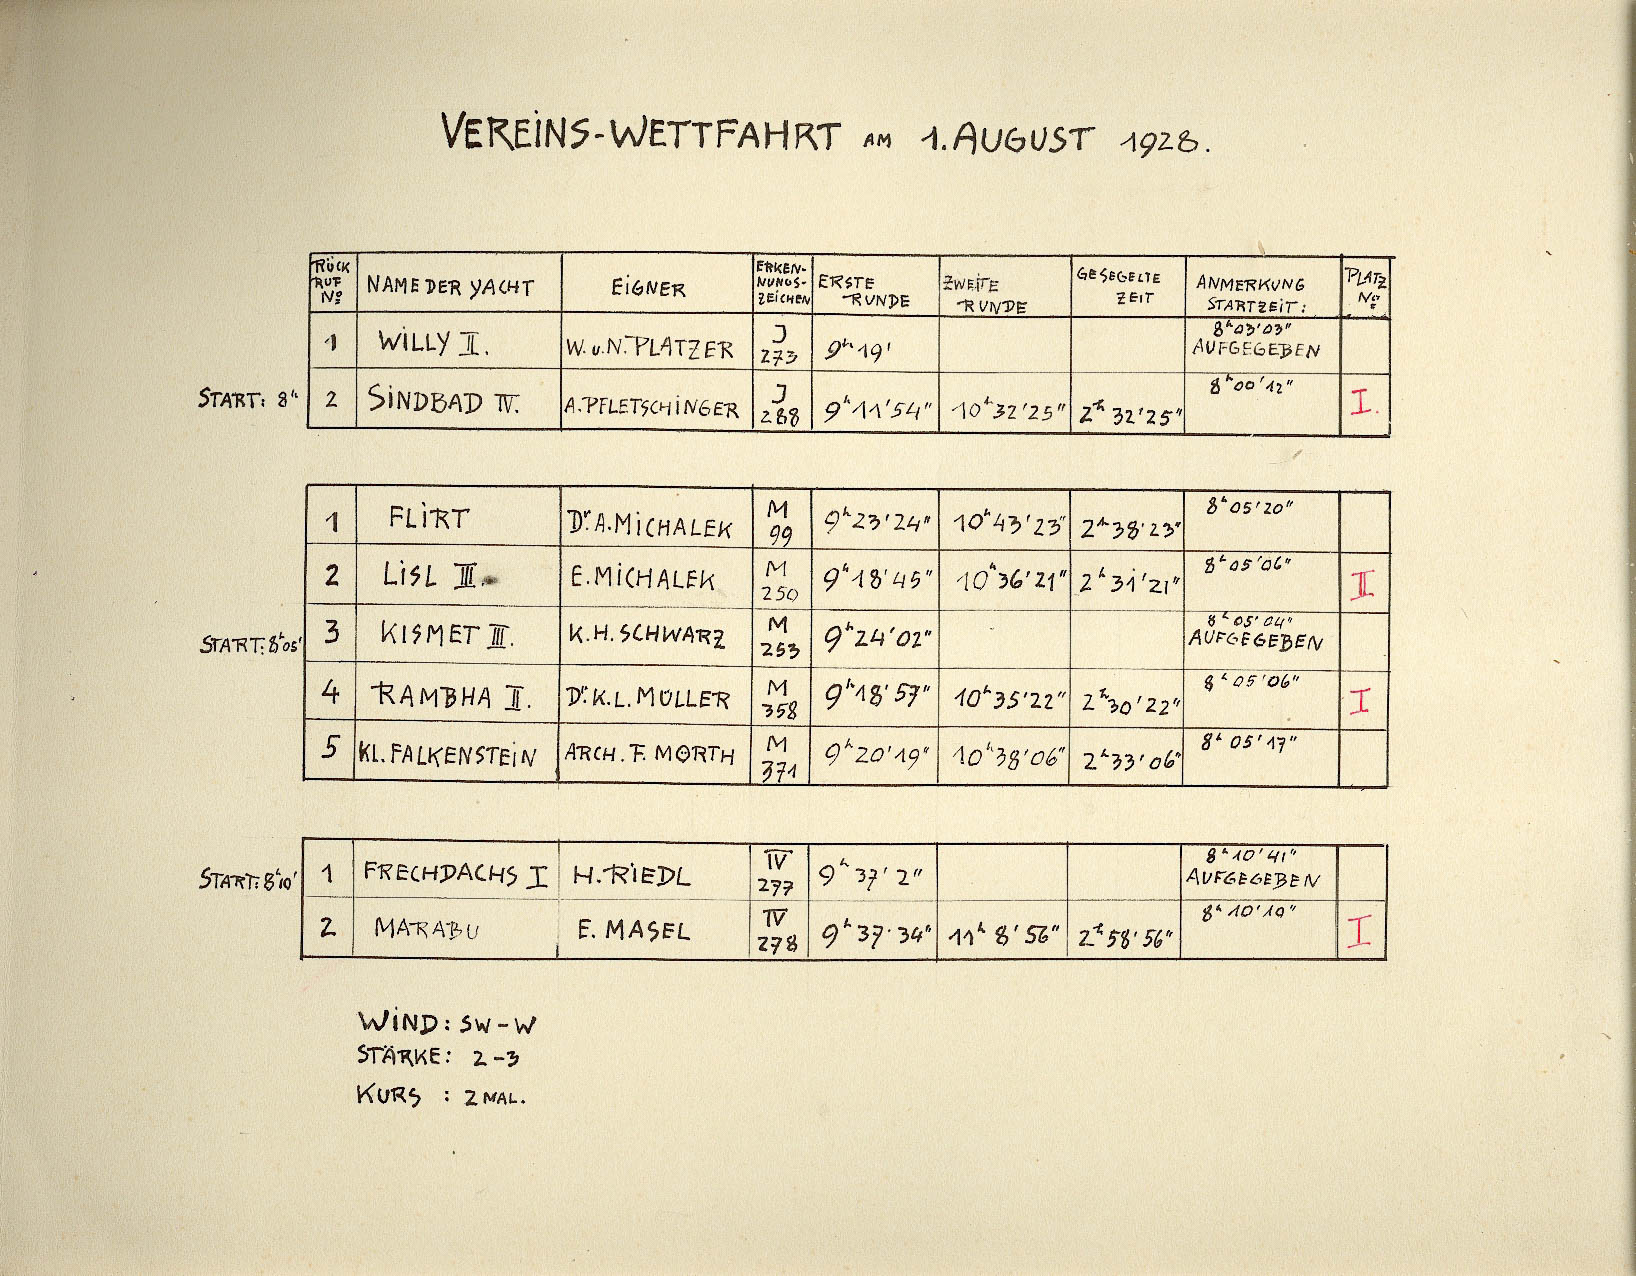 VEREINS-WETTFAHRT AM 1. AUGUST 1928.
RÜCK RUF Nº NAME DER YACHT EIGNER ERKEN-NUNGS-ZEICHEN ERSTE RUNDE ZWEITE RUNDE GESEGELTE ZEIT ANMERKUNG STARTZEIT: PLATZ Nº
1 WILLY II. W. u. N. PLATZER J 273 9ʰ 19' 8ʰ03'03" AUFGEGEBEN
START: 8ʰ 2 SINDBAD IV. A. PFLETSCHINGER J 288 9ʰ11'54" 10ʰ32'25" 2ʰ32'25" 8ʰ00'12" I.
1 FLIRT Dr. A. MICHALEK M 99 9ʰ23'24" 10ʰ43'23" 2ʰ38'23" 8ʰ05'20"
2 LISL III. E. MICHALEK M 250 9ʰ18'45" 10ʰ36'21" 2ʰ31'21" 8ʰ05'06" II
START: 8ʰ05' 3 KISMET III. K.H. SCHWARZ M 253 9ʰ24'02" 8ʰ05'04" AUFGEGEBEN
4 RAMBHA II. Dr. K.L. MÜLLER M 358 9ʰ18'57" 10ʰ35'22" 2ʰ30'22" 8ʰ05'06" I
5 KL. FALKENSTEIN ARCH. F. MÖRTH M 371 9ʰ20'19" 10ʰ38'06" 2ʰ33'06" 8ʰ05'17"
START: 8ʰ10' 1 FRECHDACHS I H. RIEDL IV 277 9ʰ37'2" 8ʰ10'41" AUFGEGEBEN
2 MARABU E. MASEL IV 278 9ʰ37'34" 11ʰ8'56" 2ʰ58'56" 8ʰ10'19" I
WIND: SW-W
STÄRKE: 2-3
KURS : 2 MAL.